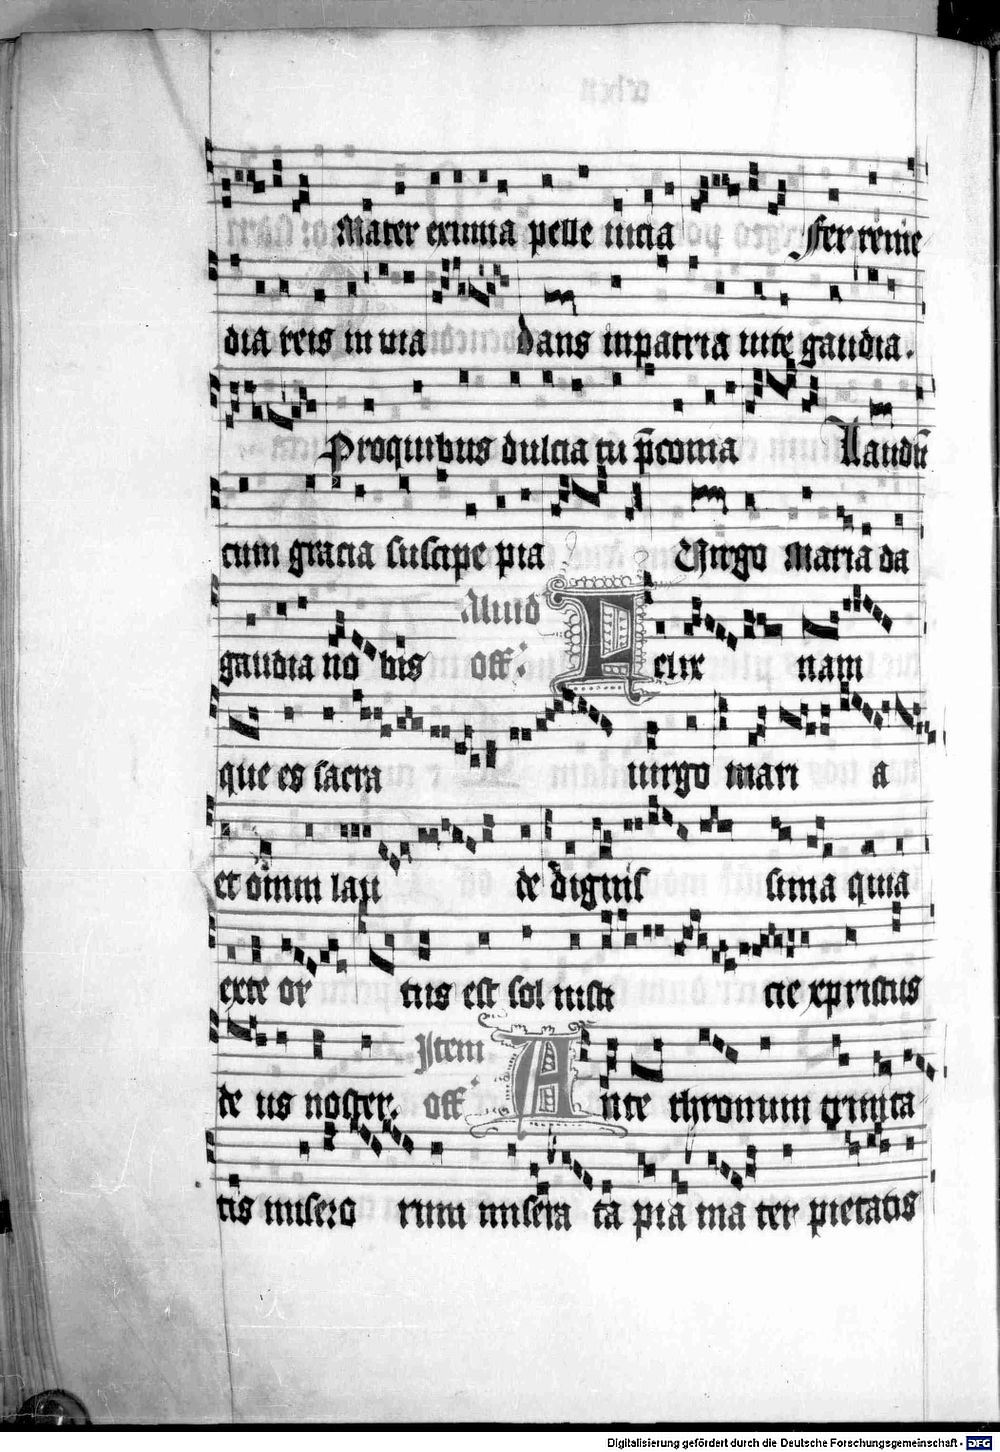 Mater eximia pelle uicia fer reme
dia reis in uia dans in patria uite gaudia.
Pro quibus dulcia tu p̄conia Laudū
cum gracia suscipe pia Virgo Maria da
gaudia no bis Aliud off: Felix nam
que es sacra uirgo mari a
et om̄i lau de dignis sima quia
ex te or tus est sol iusti cie xpristus
de us noster. Item off Ante thronum trinita
tis misero rum misera ta pia ma ter pietatis
Digitalisierung gefördert durch die Deutsche Forschungsgemeinschaft - DFG